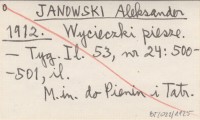 JANOWSKI Aleksander
1912. Wycieczki piesze.
— Tyg. Il. 53, nr 24: 500-
-501, il.
M.in. do Pienin i Tatr.